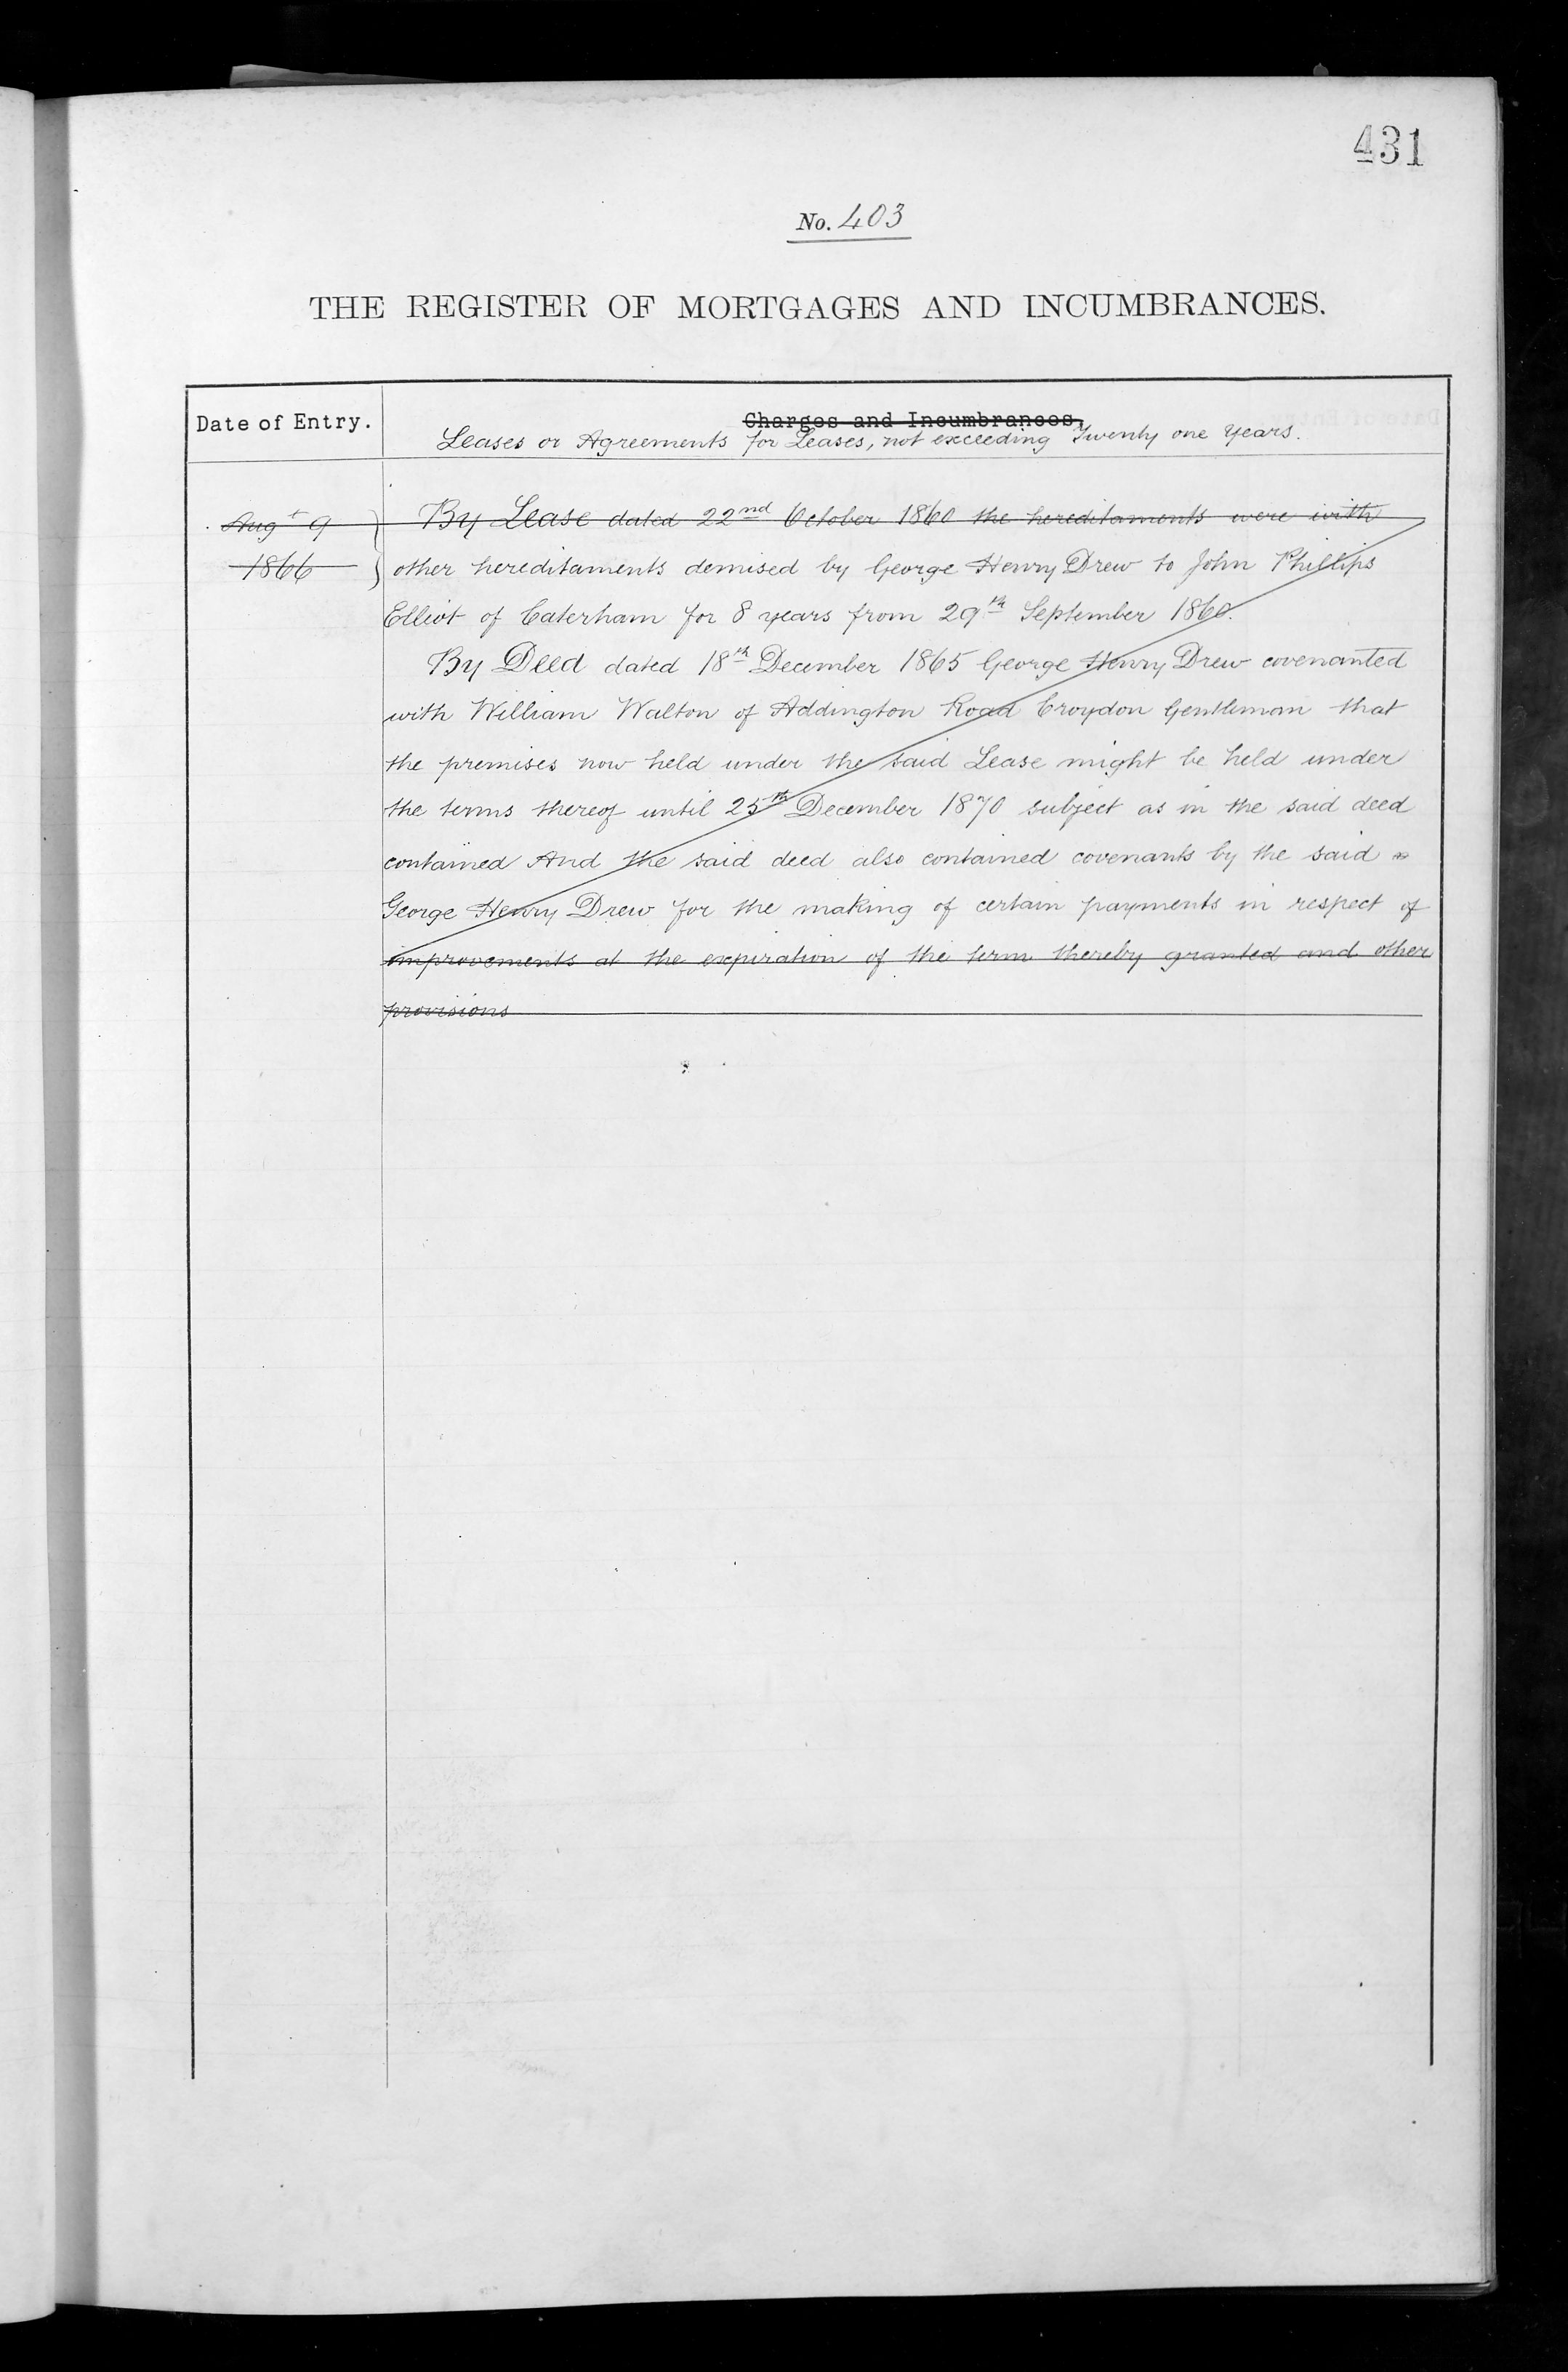 431
No. 403
THE REGISTER OF MORTGAGES AND INCUMBRANCES.
Date of Entry.
Charges and Incumbrances.
Leases or Agreements for Leases, not exceeding Twenty one Years.
Augt 9
1866
By Lease dated 22nd October 1860 the hereditaments were with
other hereditaments demised by George Henry Drew to John Phillips
Elliot of Caterham for 8 years from 29th September 1860.
By Deed dated 18th December 1865 George Henry Drew covenanted
with William Walton of Addington Road Croydon Gentleman that
the premises now held under the said Lease might be held under
the terms thereof until 25th December 1870 subject as in the said deed
contained And the said deed also contained covenants by the said
George Henry Drew for the making of certain payments in respect of
improvements at the expiration of the term thereby granted and other
provisions